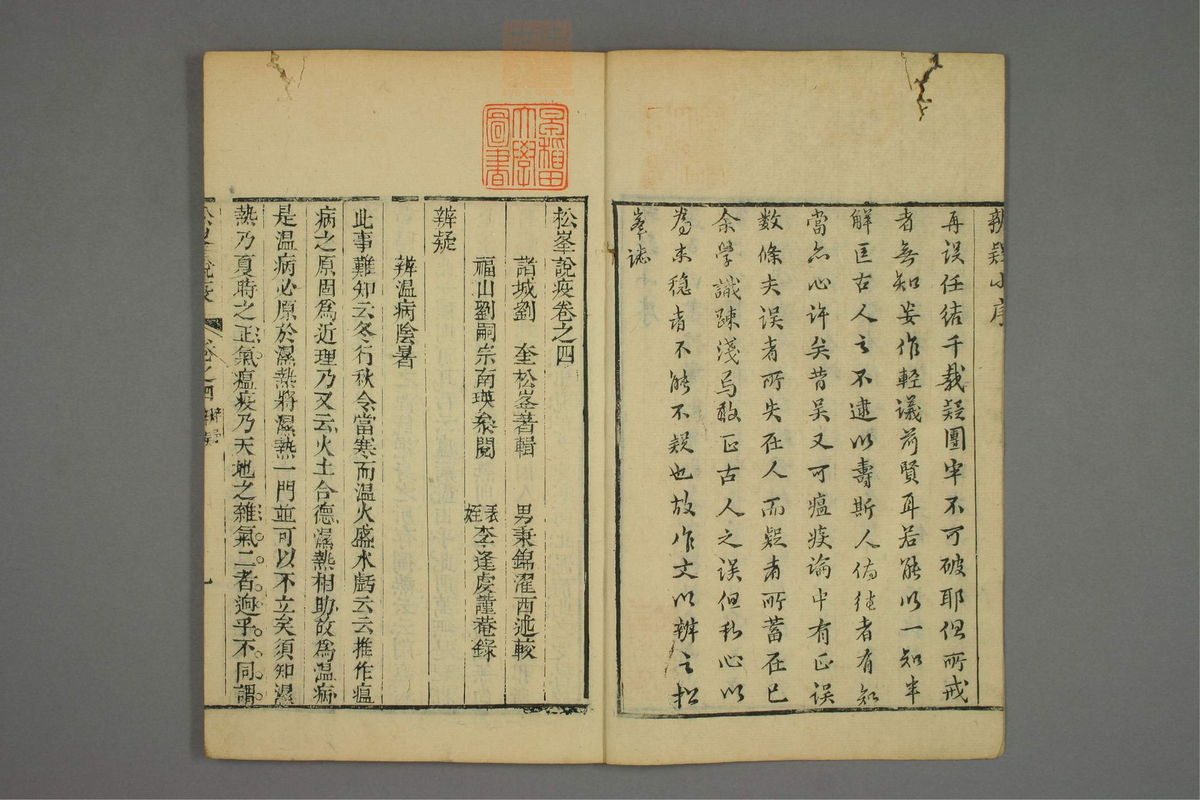 辨疑小序
再误任結千載疑團牢不可破耶但所戒
者無知妄作輕議前賢耳若能以一知半
解匡古人之不逮以壽斯人倘往者有知
當亦心許矣昔吴又可瘟疫論中有正误
數條夫误者所失在人而疑者所蓄在已
余學識踈淺烏敢正古人之误但私心以
為未穏者不能不疑也故作文以辨之松
峯誌
早稲田大學圖書
松峯說疫卷之四
諸城劉 奎松峯著輯 男秉錦濯西述較
福山劉嗣宗南瑛叅閱 表姪李逢虔蓳菴錄
辨疑
辨温病陰暑
此事難知云冬行秋令當寒而温火盛水虧云云推作瘟
病之原固爲近理乃又云火土合德濕熱相助故爲温病
是温病必原於濕熱將濕熱一門並可以不立矣須知濕
熱乃夏時之正氣瘟疫乃天地之雜氣二者逈乎不同謂
松峯說疫 卷之四 辨疑